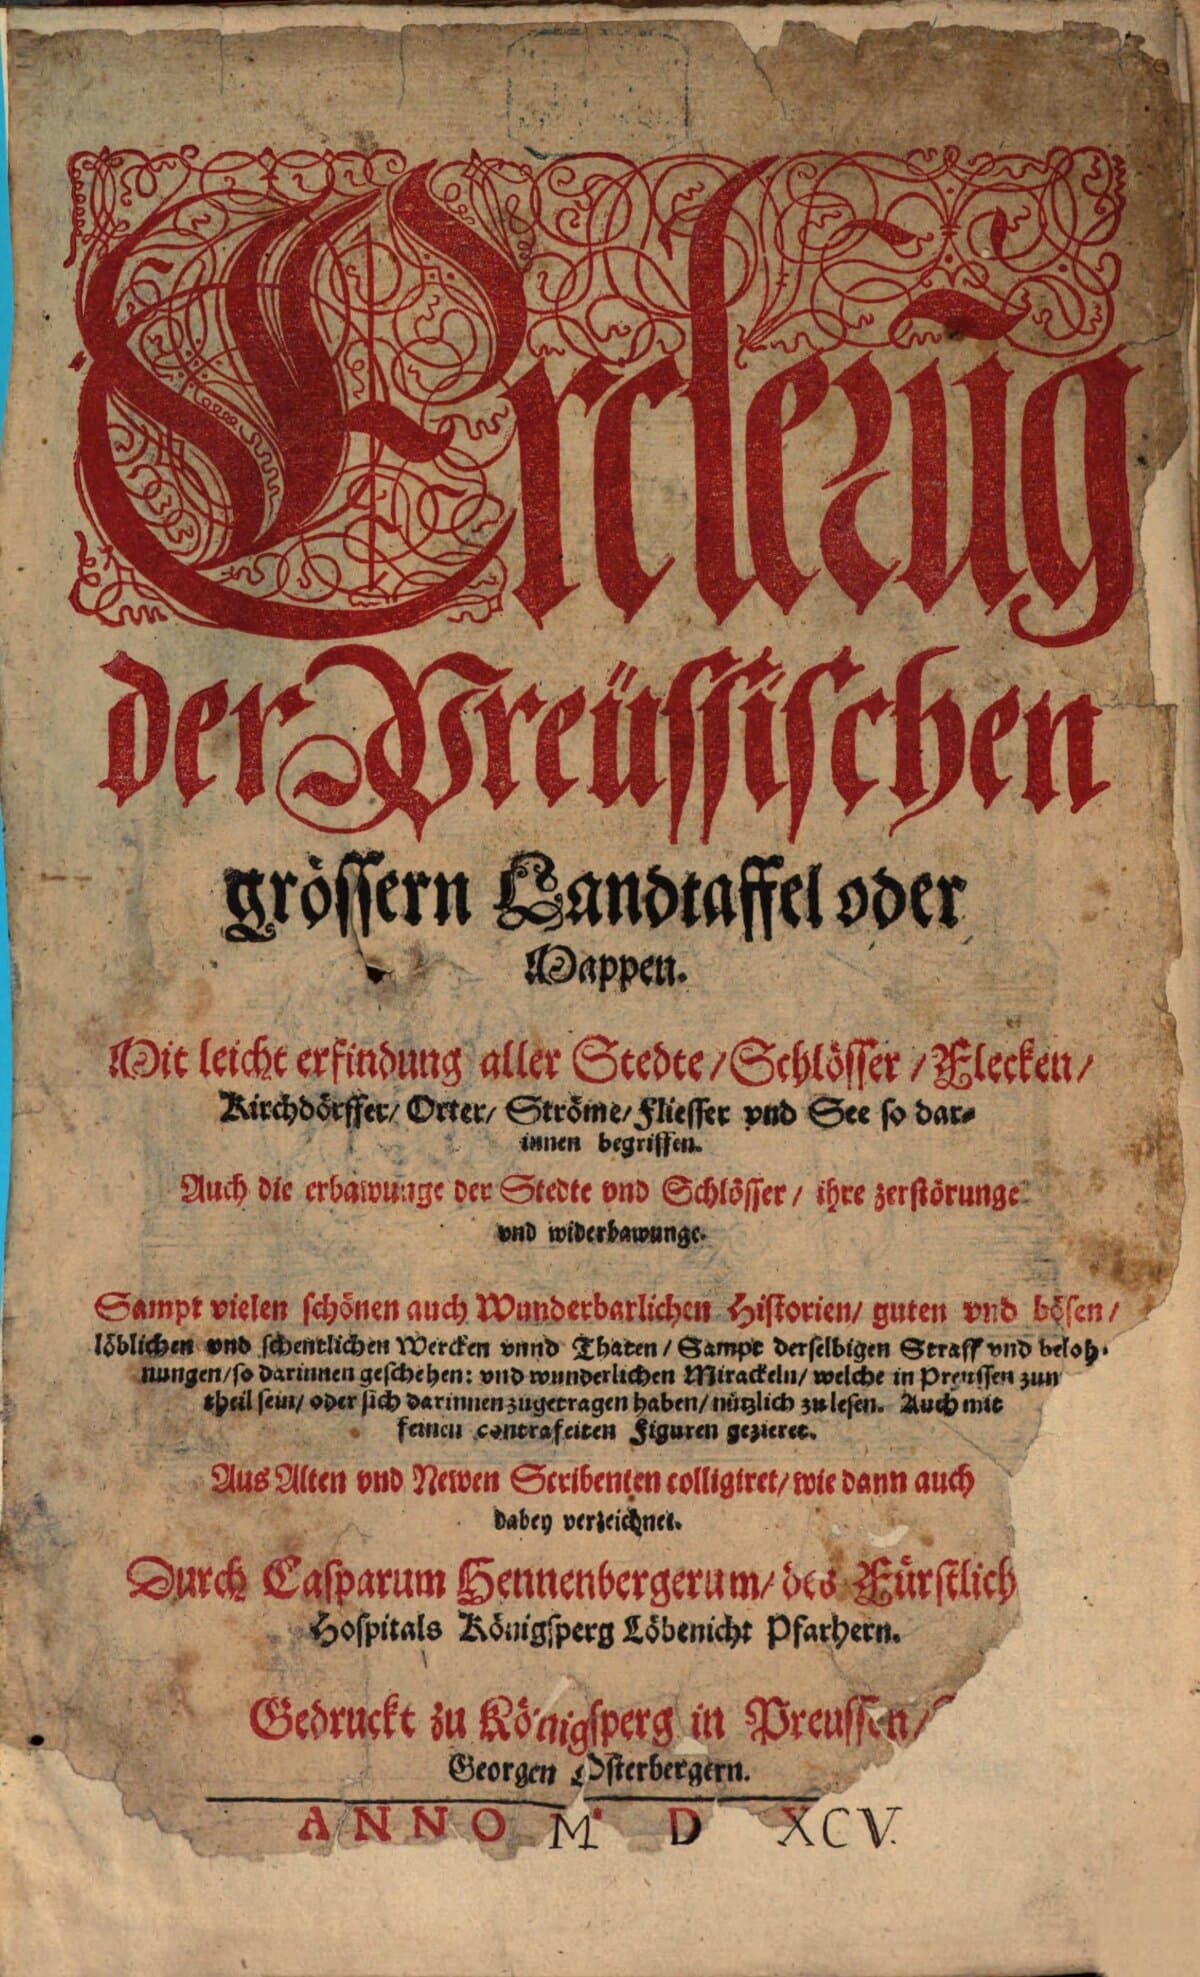 Ercleru̅g
der Preüssischen
grössern Landtaffel oder
Mappen.
Mit leicht erfindung aller Stedte/ Schlösser/ Flecken/
Kirchdörffer/ Orter/ Ströme/ Fliesser vnd See so dar⸗
innen begriffen.
Auch die erbawunge der Stedte vnd Schlösser/ ihre zerstörunge
vnd widerbawunge.
Sampt vielen schönen auch Wunderbarlichen Historien/ guten vnd bösen/
löblichen vnd schentlichen Wercken vnnd Thaten/ Sampt derselbigen Straff vnd beloh⸗
nungen/ so darinnen geschehen: vnd wunderlichen Mirackeln/ welche in Preussen zun
theil sein/ oder sich darinnen zugetragen haben/ nützlich zu lesen. Auch mit
feinen contrafeiten Figuren gezieret.
Aus Alten vnd Newen Scribenten colligiret/ wie dann auch
dabey verzeichnet.
Durch Casparum Hennenbergerum/ des Fürstlich
Hospitals Königsperg Löbenicht Pfarhern.
Gedruckt zu Königsperg in Preussen/
Georgen Osterbergern.
ANNO M D XCV.